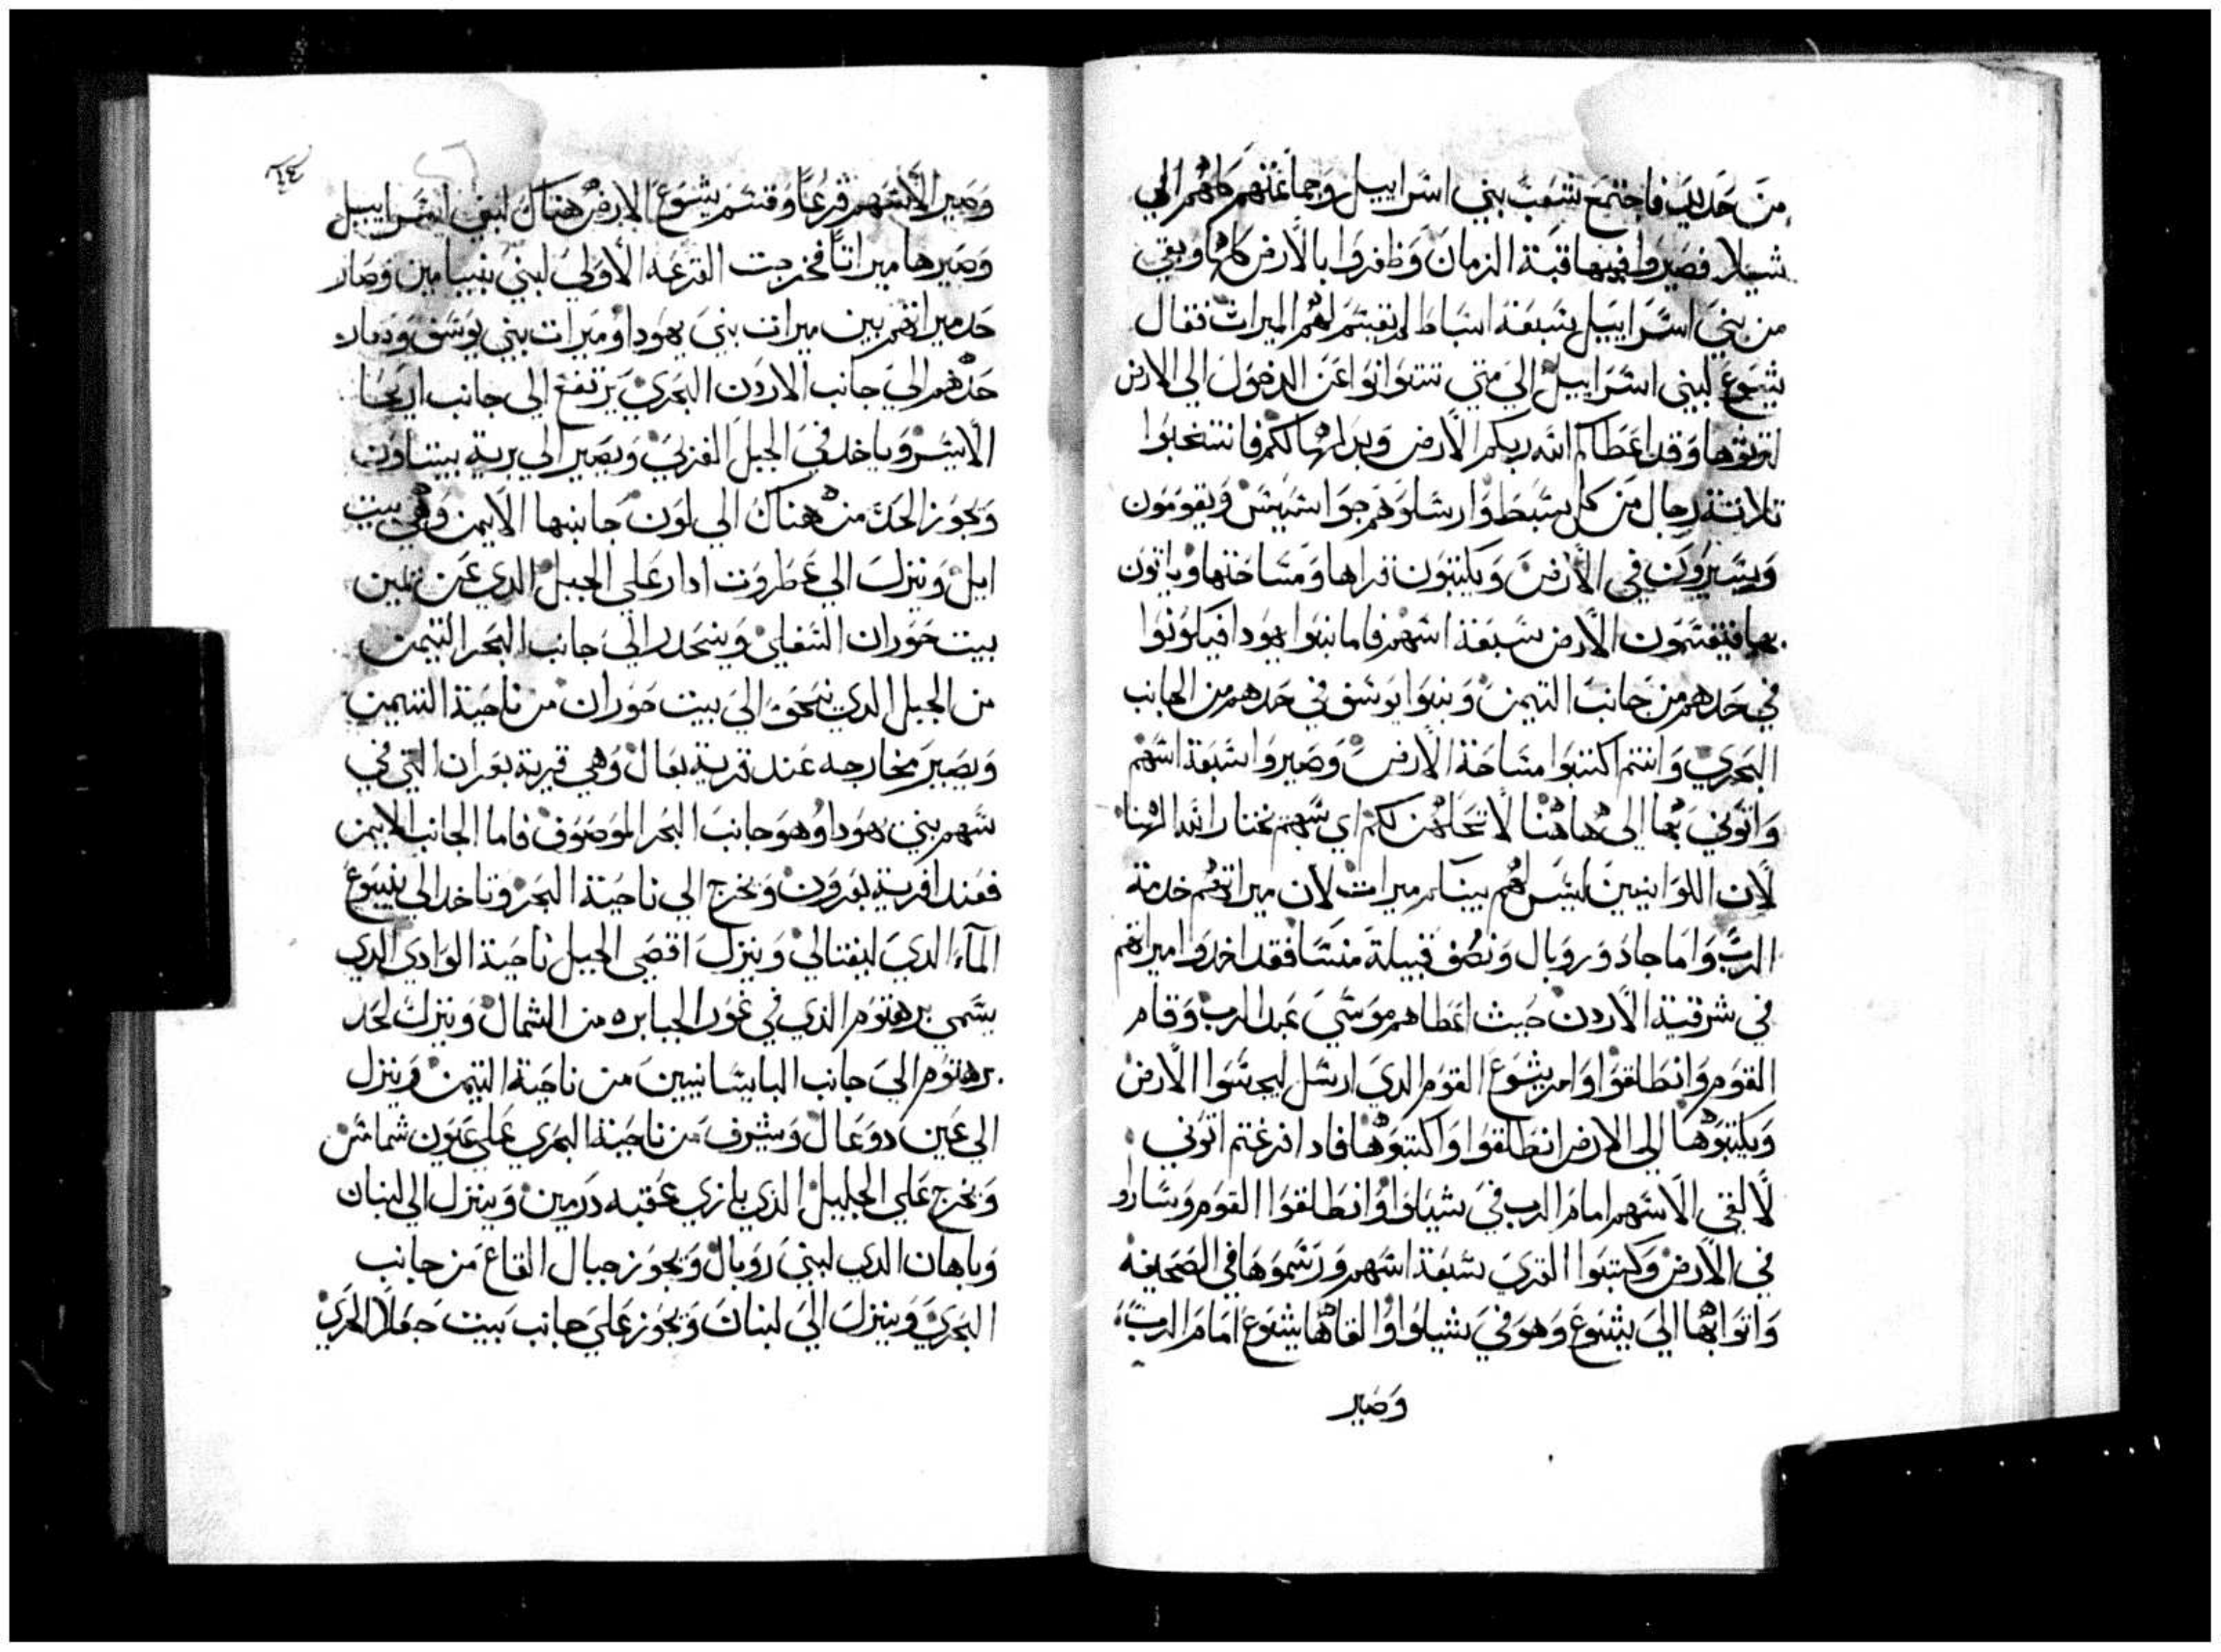 من حديد فاجتمع شعب بني اسراييل وجماعتهم كلهم الي
شيلا فصيروا فيها قبة الزمان وظفروا بالارض كلها وبقي
من بني اسراييل سبعة اسباط لم يقتسم لهم الميرات فقال
يشوع لبني اسراييل الي متي تتوانوا عن الدخول الي الارض
لترتوها وقد اعطاكم الله ربكم الارض وبدلها لكم فانتخبوا
تلاتة رجال من كل سبط وارسلوهم جواسيس ويقومون
ويسيرون في الارض ويكتبون قراها ومساحتها وياتون
بها فيقتسمون الارض سبعة اسهم فاما بنوا يهودا فيكونوا
في حدهم من جانب التيمن وبنوا يوسف في حدهم من الجانب
البحري وانتم اكتبوا مساحة الارض وصيروا سبعة اسهم
واتوني بها الي هاهنا لا لكم اي سهم يختار الله الهنا
لان اللوانيين ليس لهم بيننا ميرات لان ميراتهم خدمة
الرب واما جاد وروبال ونصف قبيلة منسا فقد اخدوا ميراتهم
في شرقية الاردن حيث اعطاهم موسي عبد الرب وقام
القوم وانطلقوا وامر يشوع القوم الدي ارسل ليجسوا الارض
ويكتبوها الي الارض انطلقوا واكتبوها فادا فرغتم اتوني
لالقي الاسهم امام الرب في شيلوا وانطلقوا القوم وساروا
في الارض وكتبوا القري سبعة اسهم ورسموها في الصحيفه
واتوا بها الي يشوع وهو في شيلوا والقاها يشوع امام الرب
وصير
٦٤
وصير الاسهم قرعا وقسم يشوع الارض هناك لبني اسراييل
وصيرها ميراتا فخرجت القرعه الاولي لبني بنيامين وصار
حد ميراتهم بين ميرات بني يهودا وميرات بني يوسف وصار
حدهم الي جانب الاردن البحري يرتفع الي جانب اريحا
الايسر وياخد في الجبل الغربي ويصير الي برية بيتاون
ويجوز الحد من هناك الي لون جانبها الايمن وهي بيت
ايل وينزل الي عطروت ادار علي الجبل الدي عن يمين
بيت حوران السفلي وينحدر الي جانب البحر التيمن
من الجبل الدي نحو الي بيت حوران من ناحية التيمن
ويصير مخارجه عند قرية بعال وهي قرية بعران التي في
سهم بني يهودا وهو جانب البحر الموصوف فاما الجانب الايمن
فعند اقرية بعرون ويخرج الي ناحية البحر وتاخد الي ينبوع
المآء الدي لنفتالي وينزل اقصي الجبل ناحية الوادي الدي
يسمي برهنوم الذي في غور الجبابره من الشمال وينزل لحد
برهنوم الي جانب اليابسانيين من ناحية التيمن وينزل
الي عين دوعال ويشرف من ناحية البحري علي عيون شماش
ويخرج علي الجليل الذي بازي عقبه درمين وينزل الي لبنان
وباهان الدي لبني روبال ويجوز جبال القاع من جانب
البحري وينزل الي لبنان ويجوز علي جانب بيت جعلا البحري